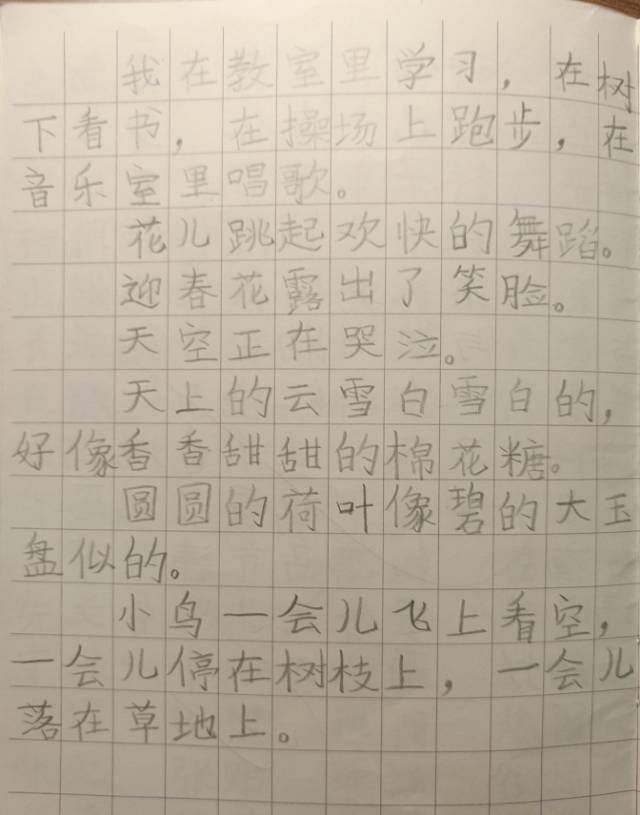 我在教室里学习，在树
下看书，在操场上跑步，在
音乐室里唱歌。
花儿跳起欢快的舞蹈。
迎春花露出了笑脸。
天空正在哭泣。
天上的云雪白雪白的，
好像香香甜甜的棉花糖。
圆圆的荷叶像碧的大玉
盘似的。
小鸟一会儿飞上看空，
一会儿停在树枝上，一会儿
落在草地上。